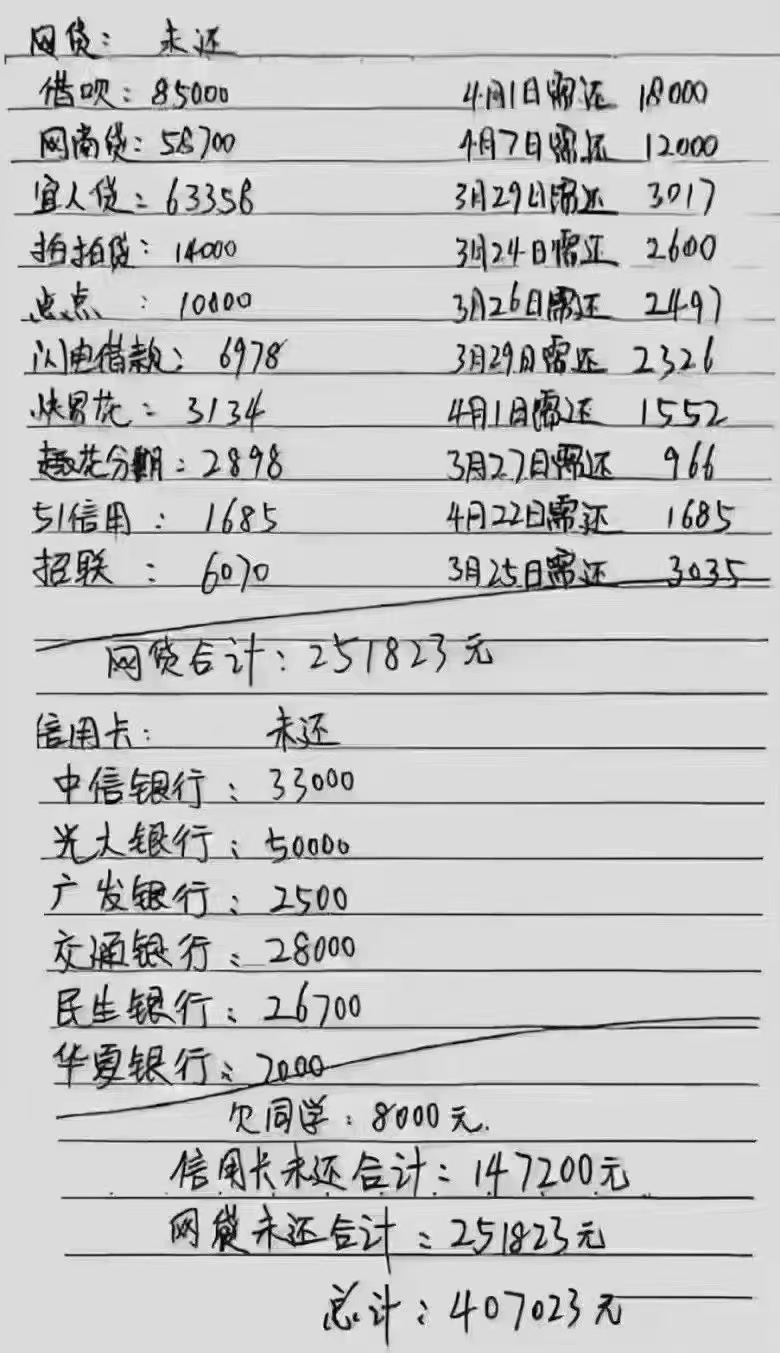 网贷： 未还
借呗：85000 4月1日需还 18000
网商贷：58700 4月7日需还 12000
宜人贷：63358 3月29日需还 3017
拍拍贷：14000 3月24日需还 2600
点点 ：10000 3月26日需还 2497
闪电借款：6978 3月29日需还 2326
快易花：3134 4月1日需还 1552
趣花分期：2898 3月27日需还 966
51信用：1685 4月22日需还 1685
招联 ：6070 3月25日需还 3035
网贷合计：251823元
信用卡： 未还
中信银行：33000
光大银行：50000
广发银行：2500
交通银行：28000
民生银行：26700
华夏银行：7000
欠同学：8000元.
信用卡未还合计：147200元
网贷未还合计：251823元
总计：407023元